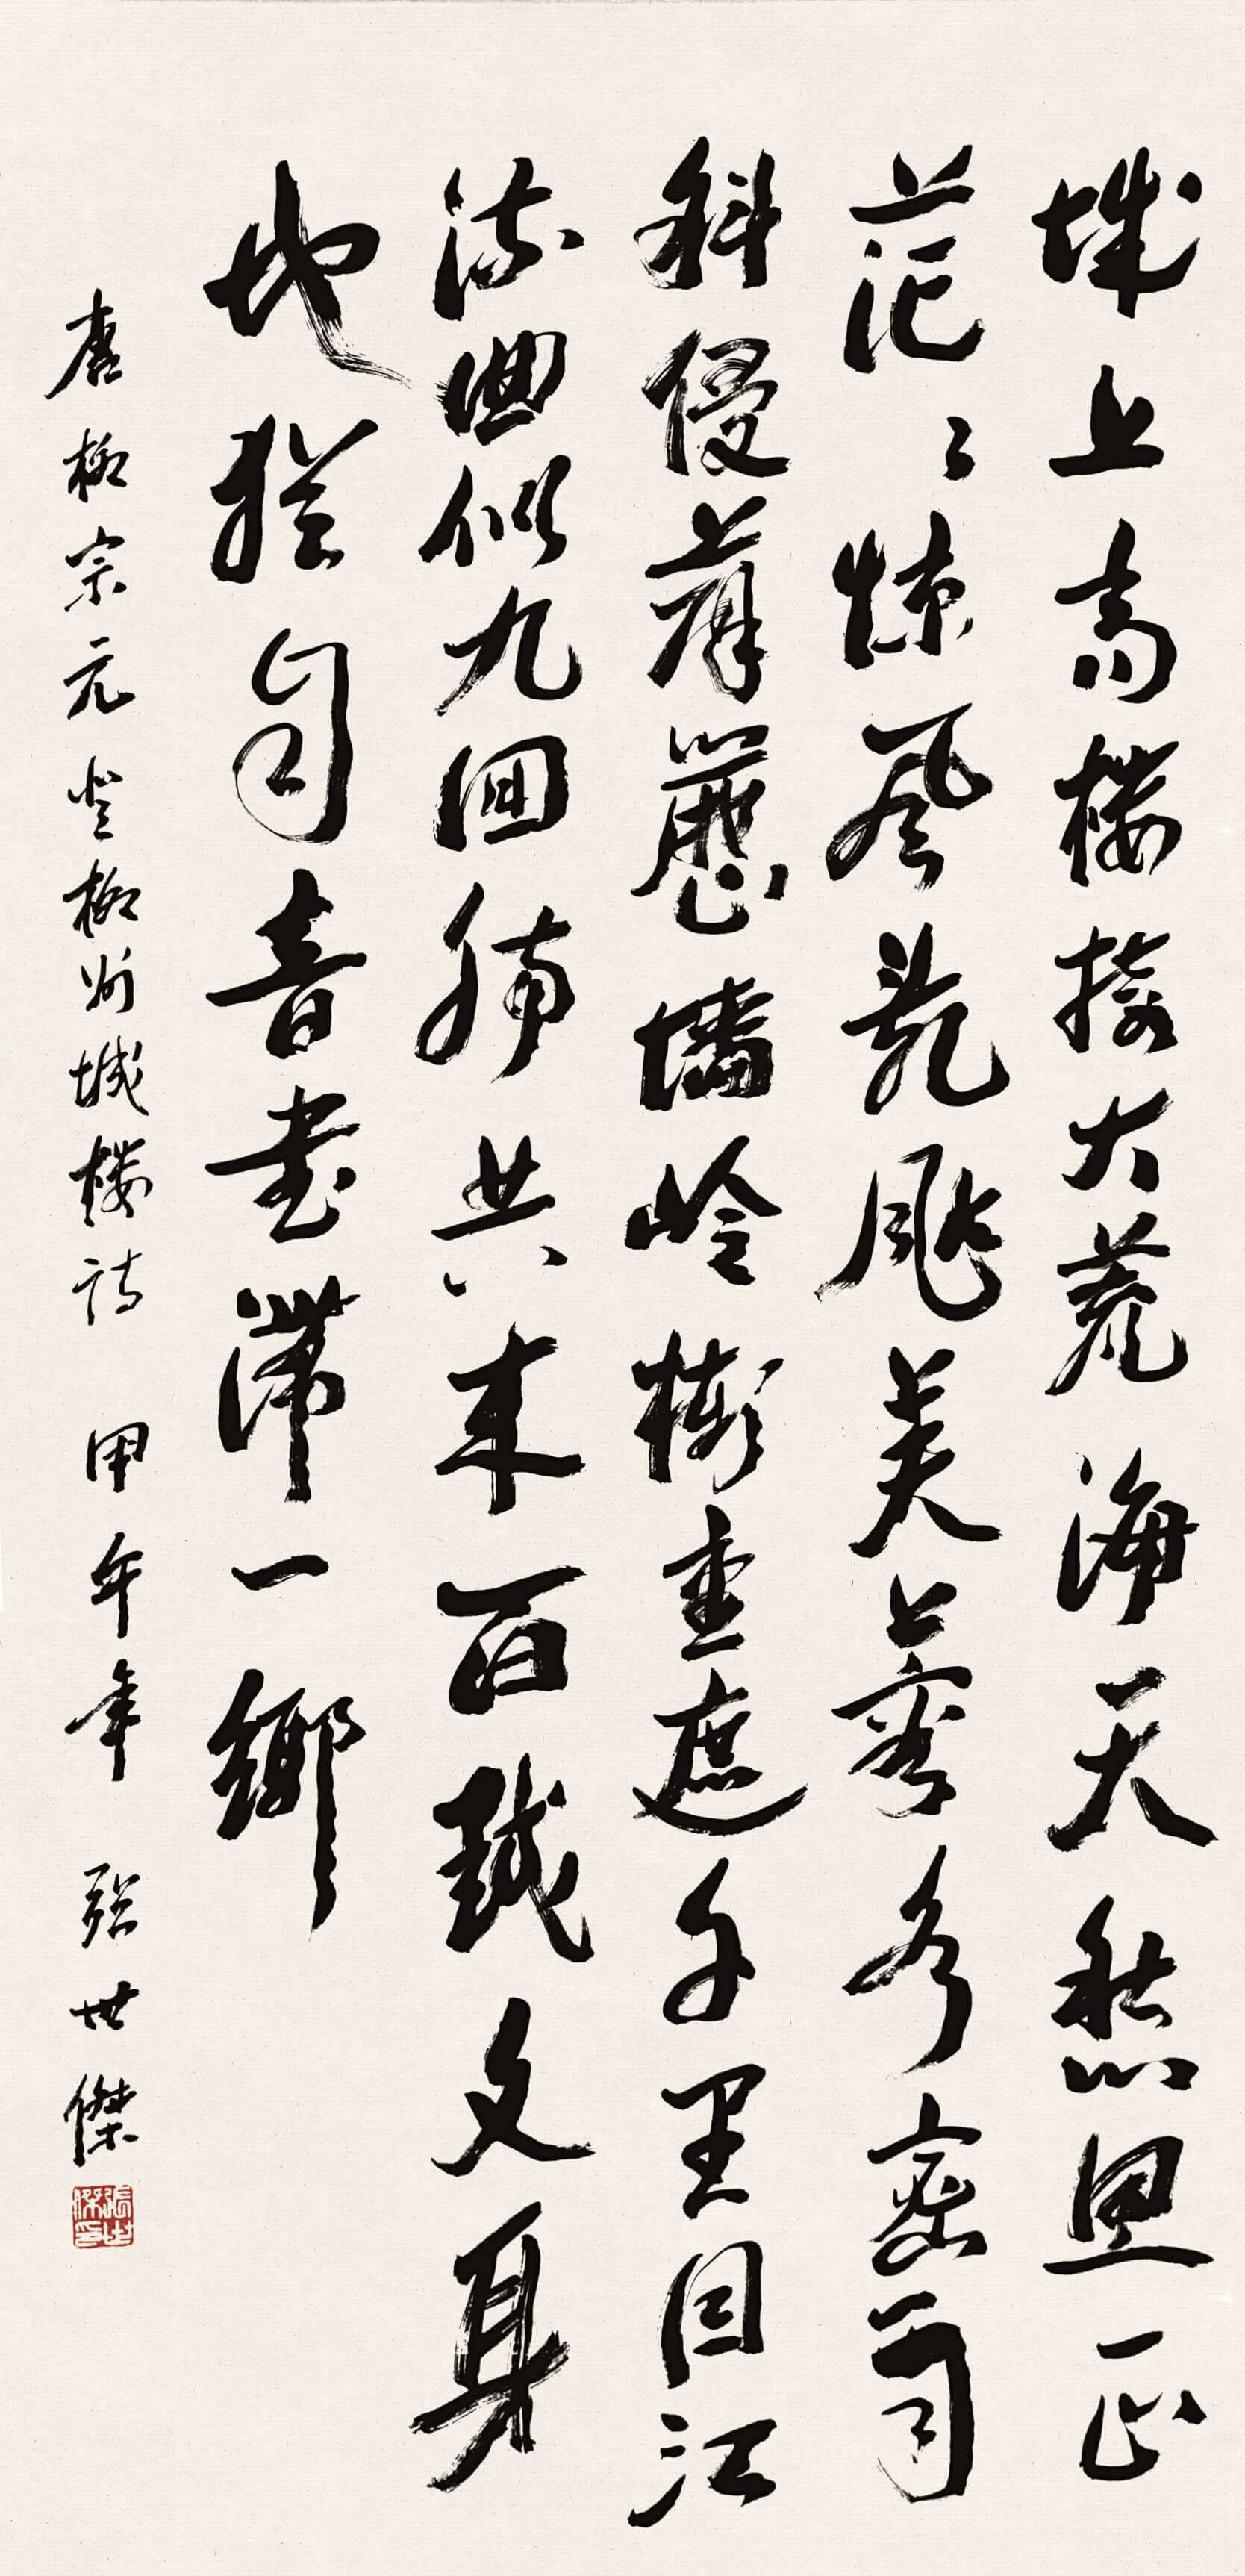 城上高樓接大荒海天愁思正
茫〻惊風亂颭芙蓉水密雨
斜侵薜荔墻岭樹重遮千里目江
流曲似九回腸共来百越文身
地猶自音書滯一鄉
唐柳宗元登柳州城樓詩 甲午年 張世傑
張世傑印